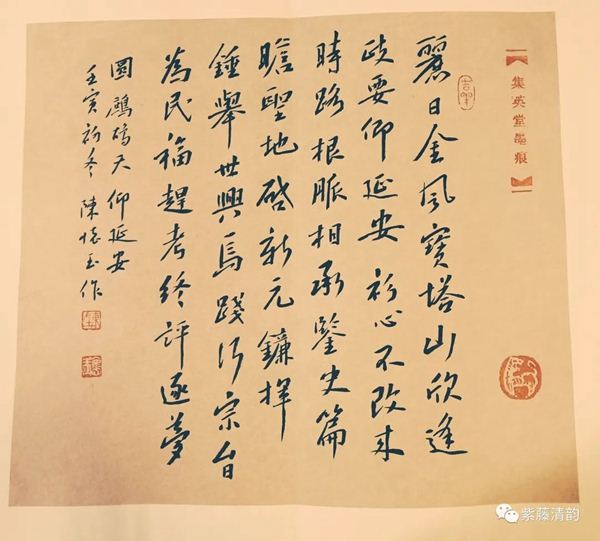 集英堂墨痕
麗日金風寶塔山欣逢
要仰延安初心不改来
時路根脈相承鑒史篇
瞻聖地啓新元鐮揮
錘舉世興焉踐行宗旨
為民福趕考終評逐夢
圓 鷓鴣天 仰延安
壬寅初冬 陳懷玉作
紫藤清韵